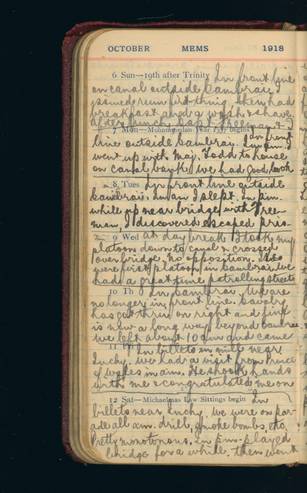 OCTOBER MEMS 1918
6 Sun—19th after Trinity In front line
on canal outside Cambrai.
issued rum first thing then had
breakfast and a wash & shave
after lunch
7 Mon—Mohammedan Year 1337 begins In front
line outside Cambrai. In p.m. I
went up with Maj. Todd to house
on canal bank. We had good look
8 Tues In front line outside
Cambrai. In a.m. I slept. In p.m.
while up near bridge with Free-
man, I discovered escaped pris-
9 Wed At day break I took my
platoon down to canal & crossed
over bridge. No opposition. I also
were first platoon in Cambrai. We
had a great time patrolling streets
10 Th In Cambrai. We are
no longer in front line. Cavalry
has got thru on right and line
is now a long way beyond Cambrai
we left about 10 a.m. and came
11 Fri In billets in mill near
Inchy. We had a visit from Prince
of Wales in a.m. He shook hands
with me & congratulated me on
12 Sat—Michaelmas Law Sittings begin In
billets near Inchy. We were on par-
ade all a.m. drill, smoke bombs, etc,
Pretty monotonous. In p.m. played
bridge for a while, then went